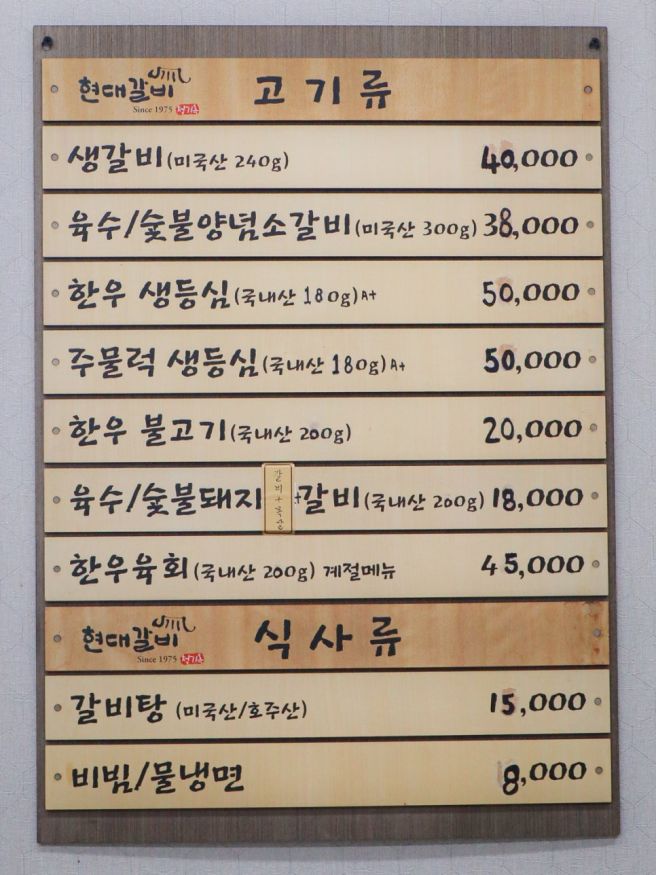 현대갈비 고기류
Since 1975
생갈비(미국산 240g) 40,000
육수/숯불양념소갈비(미국산 300g) 38,000
한우 생등심(국내산 180g)A+ 50,000
주물럭 생등심(국내산 180g)A+ 50,000
한우 불고기(국내산 200g) 20,000
육수/숯불돼지 갈비(국내산 200g) 18,000
한우육회(국내산 200g) 계절메뉴 45,000
현대갈비 식사류
Since 1975
갈비탕 (미국산/호주산) 15,000
비빔/물냉면 8,000